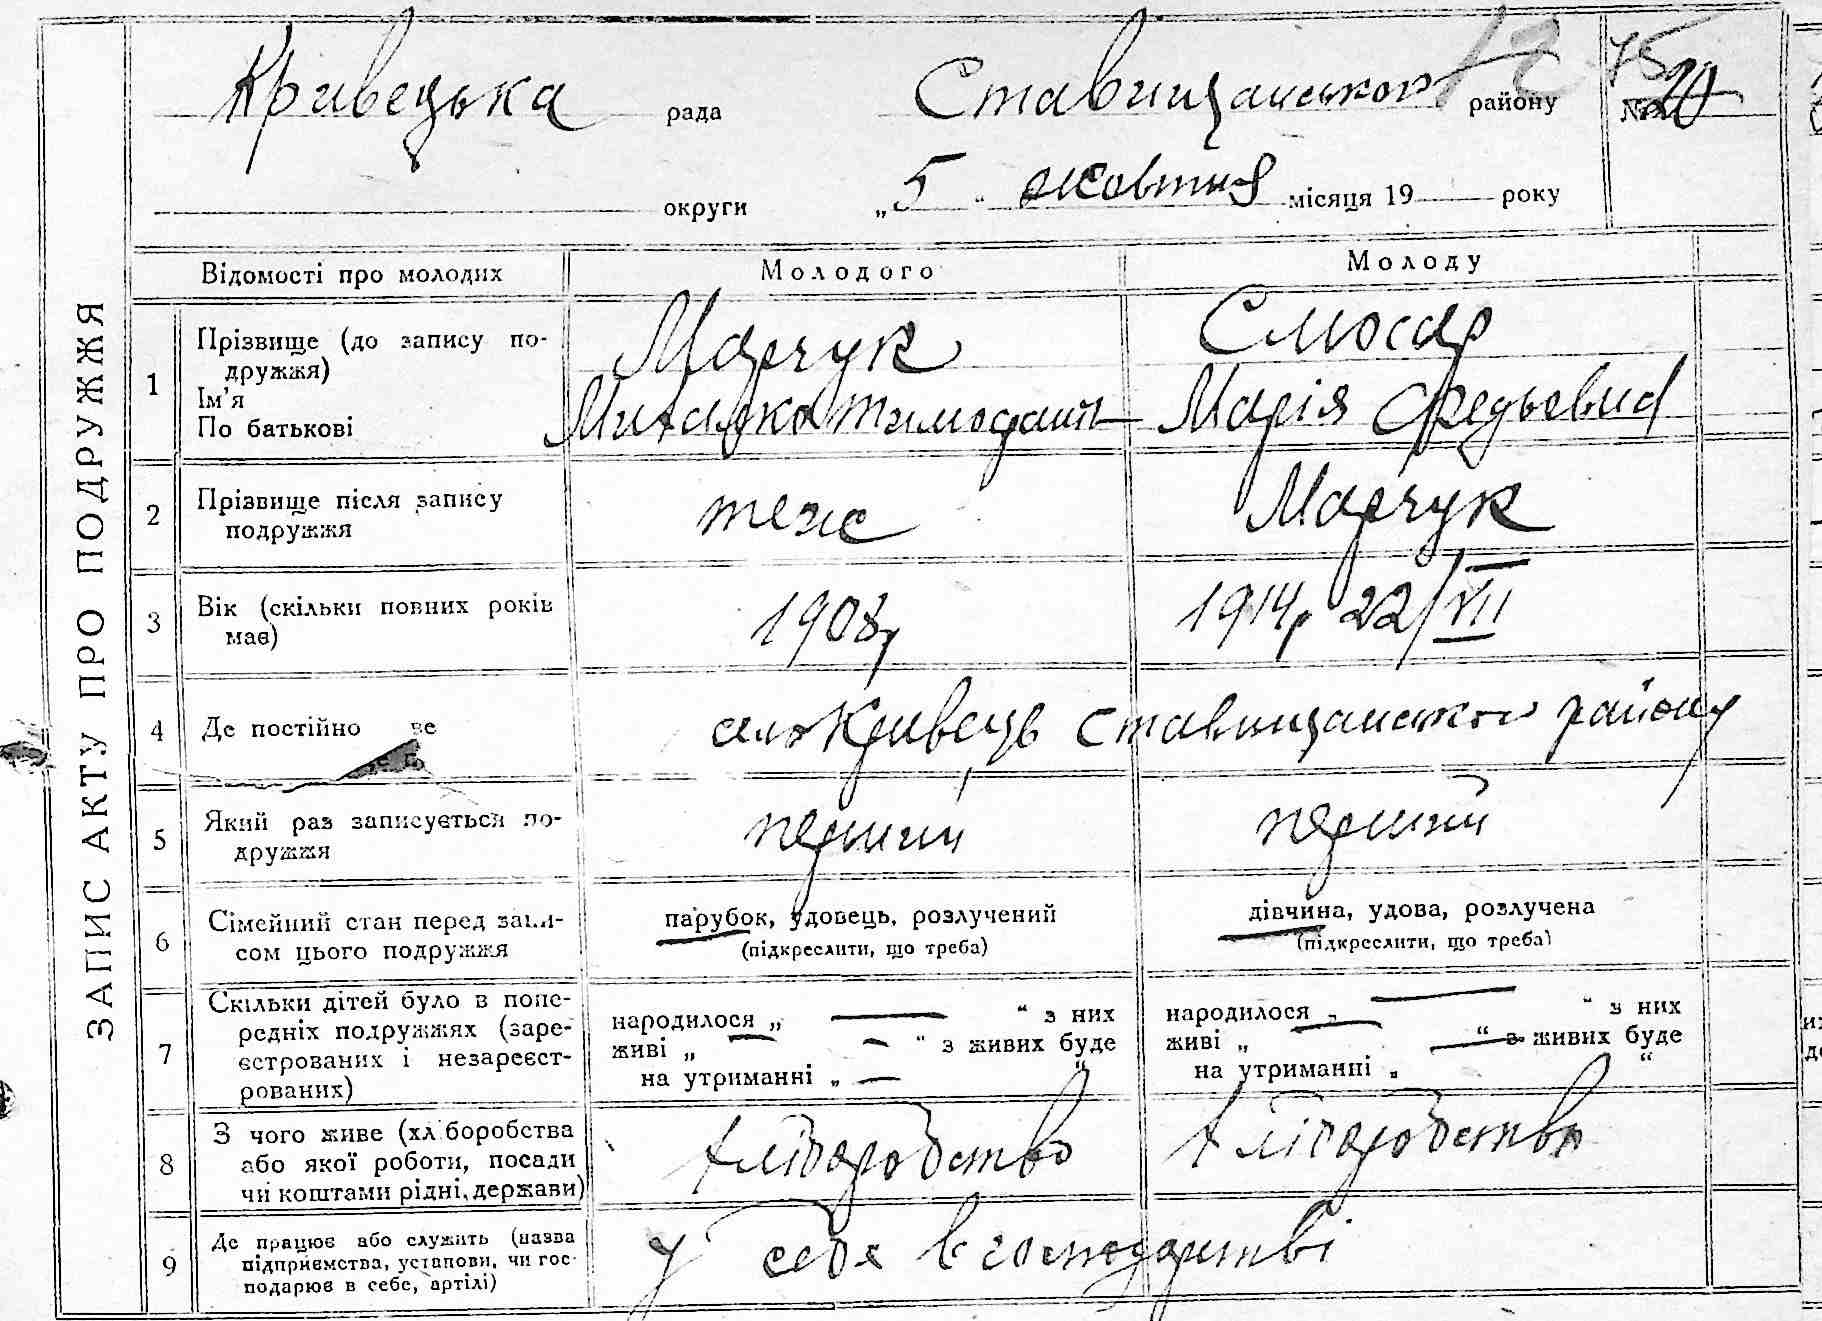 ЗАПИС АКТУ ПРО ПОДРУЖЖЯ
Кривецька рада Ставищанського району № 20
75
округи „5“ жовтня місяця 19 року
Відомості про молодих Молодого Молоду
1 Прізвище (до запису по-
дружжя)
Ім’я
По батькові
Марчук
Михалко
Слюсар
Марія Федьовна
2 Прізвище після запису
подружжя
теж
Марчук
3 Вік (скільки повних років
має)
1908р
1914р 22/VIII
4 Де постійно ве
село Кривець Ставищанського району
5 Який раз записується по-
дружжя
перший
перший
6 Сімейний стан перед запи-
сом цього подружжя
парубок, удовець, розлучений
(підкреслити, що треба)
дівчина, удова, розлучена
(підкреслити, що треба)
7 Скільки дітей було в попе-
редніх подружжях (заре-
єстрованих і незареєст-
рованих)
народилося „ — “ з них
живі „ — “ з живих буде
на утриманні „ — “
народилося „ — “ з них
живі „ — “ з живих буде
на утриманні „ “
8 З чого живе (хліборобства
або якої роботи, посади
чи коштами рідні, держави)
хліборобство
хліборобство
9 Де працює або служить (назва
підприємства, установи, чи гос-
подарює в себе, артілі)
у себе в господарстві